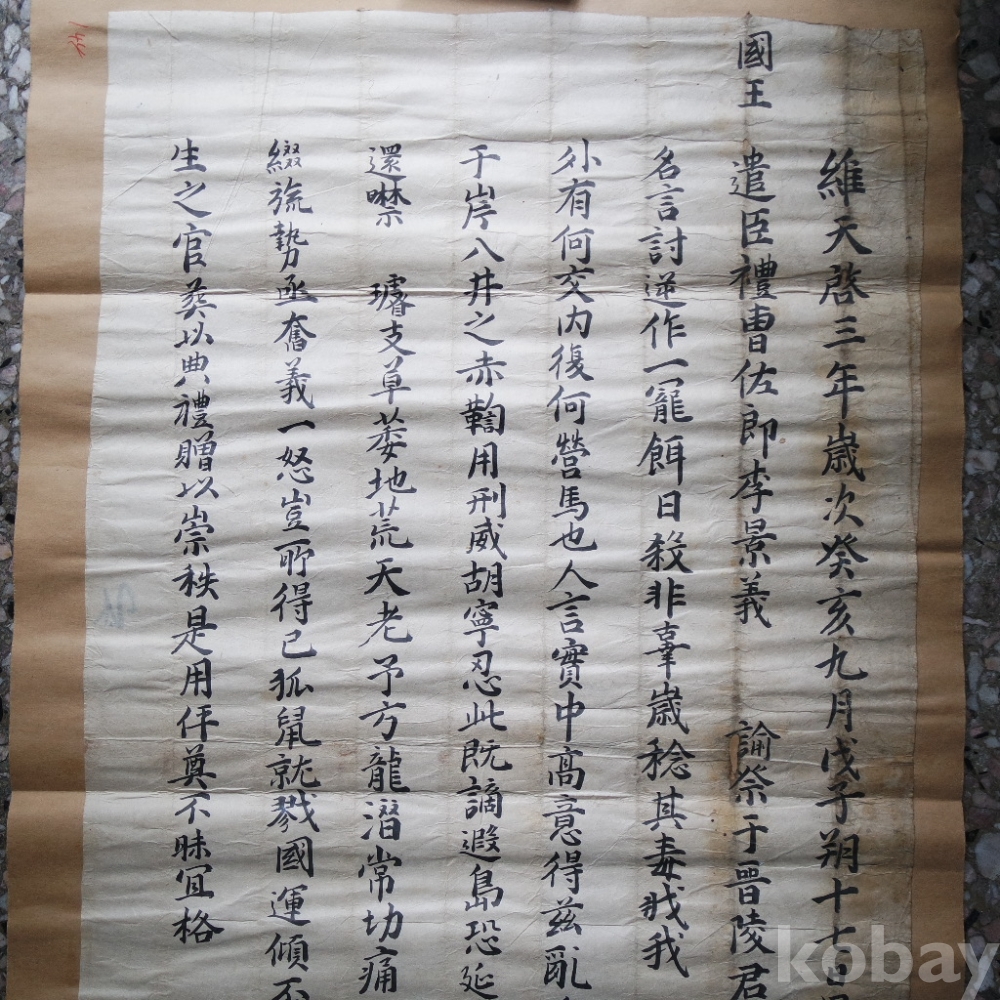 維天啓三年歲次癸亥九月戊子朔十七日
國王 遣臣禮曹佐郎李景義 諭祭于晉陵君
名言討逆作一寵餌日殺非辜歲稔其毒戕我
外有何交内復何營馬也人言實中高意得茲亂
于岸八井之赤鞫用刑威胡寧忍此既謫遐島恐延
還噤 璿支草萎地荒天老予方龍潛常切痛
綴旒勢亟奮義一怒豈所得已狐鼠就戮國運傾否
生之官葬以典禮贈以崇秩是用伻奠不昧冝格
kobay